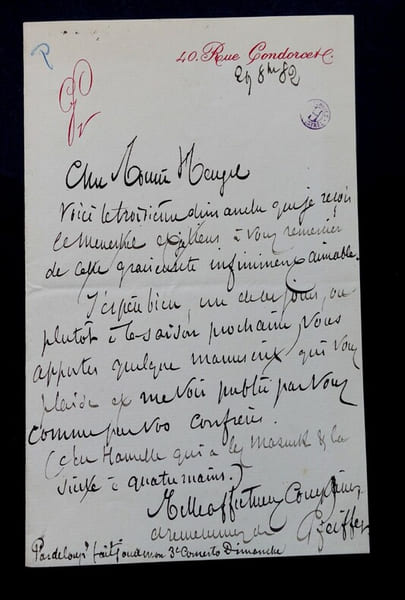 P
GP
40. Rue Condorcet.
29 8bre 82
Cher Monsieur Heugel
Voici le troisième dimanche que je reçois
le Menestrel et je tiens à vous remercier
de cette gracieuseté infiniment aimable.
J'espère bien, un de ces jours, ou
plutôt à la saison prochaine, vous
apporter quelque manuscrit qui vous
plaise et me voir publié par vous
comme par vos confrères.
(chez Hamelle qui a les Mazurk & la
suite à quatre mains.)
Mille affectueux compliments
de
G Pfeiffer
Pasdeloup fait jouer mon 3e Concerto Dimanche